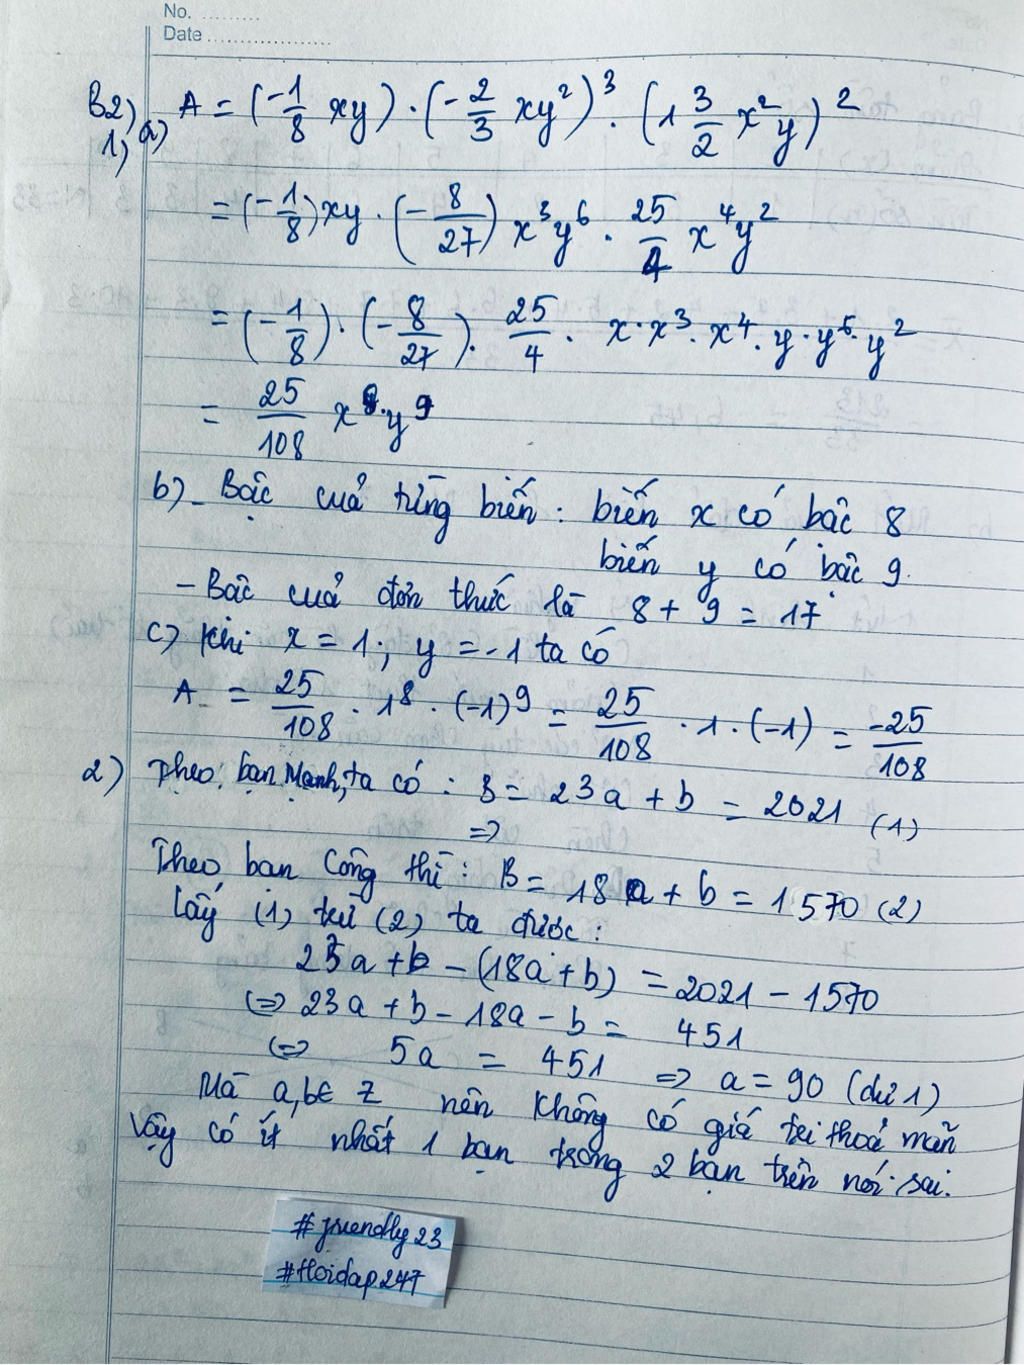 No. .........
Date ..................
B2)
1, a) A = (-1/8 xy) · (-2/3 xy²)³ · (1 3/2 x²y)²
= (-1/8) xy · (-8/27) x³y⁶ · 25/4 x⁴y²
= (-1/8) · (-8/27) · 25/4 · x·x³·x⁴·y·y⁶·y²
= 25/108 x⁸·y⁹
b) - Bậc cuả từng biến : biến x có bậc 8
biến y có bậc 9.
- Bậc cuả đơn thức là 8 + 9 = 17
c) Khi x = 1 ; y = -1 ta có
A = 25/108 · 1⁸ · (-1)⁹ = 25/108 · 1 · (-1) = -25/108
2) Theo bạn Mạnh, ta có : B = 23a + b = 2021 (1)
=>
Theo bạn Công thì : B = 18a + b = 1570 (2)
Lấy (1) trừ (2) ta được :
23a + b - (18a + b) = 2021 - 1570
<=> 23a + b - 18a - b = 451
<=> 5a = 451 => a = 90 (dư 1)
Mà a, b ∈ Z nên không có giá trị thoả mãn
Vậy có ít nhất 1 bạn trong 2 bạn trên nói sai.
#friendly23
#Hoidap247